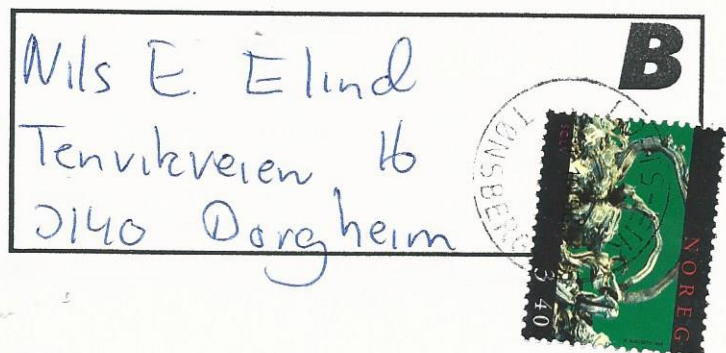 B
Nils E. Elind
Tenvikveien 16
3140 Borgheim
TØNSBERG
NOREG
3 40